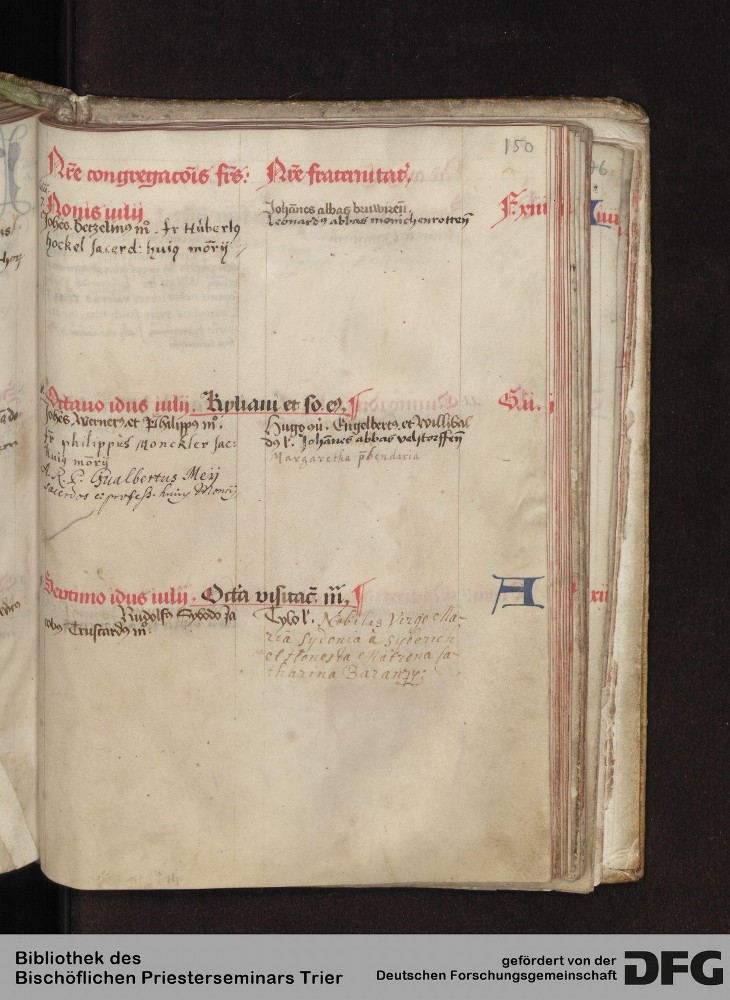 150
Nr̄e congregacōis fr̄s: Nr̄e fraternitatꝭ
Nonis iulij
F. xiii
Joh̄es. Betzelinꝰ mº. fr Hubertꝰ
hockel sacerd: huiꝰ mōrij
Johānes abbas bruwilreñ.
Leonardꝰ abbas monichenrotteñ
Octauo idus iulij. Kyliani et so. eꝰ.
G. ii.
Joh̄es, Wernerꝰ, et Philippꝰ mº.
fr̄ philippūs Monckler sac:
huiꝰ mōrij
A. R. P. Gualbertus Meij
sacerdos et profess. huiꝰ Monrij
Hugo Engelbertꝰ, et Willibal
dꝰ l'. Johānes abbas valstorffeñ
Margaretha p̄bendaria
Septimo idus iulij. Octã visitac̄. m̄.
A
Rudolfꝰ Sybodo Ja
cobꝰ Truscardꝰ mº
Tylo l'. Nobilis Virgo Ma-
ria Sydonia à Syberich
et Honesta Matrona Ca-
tharina
Bibliothek des
Bischöflichen Priesterseminars Trier
gefördert von der
Deutschen Forschungsgemeinschaft
DFG